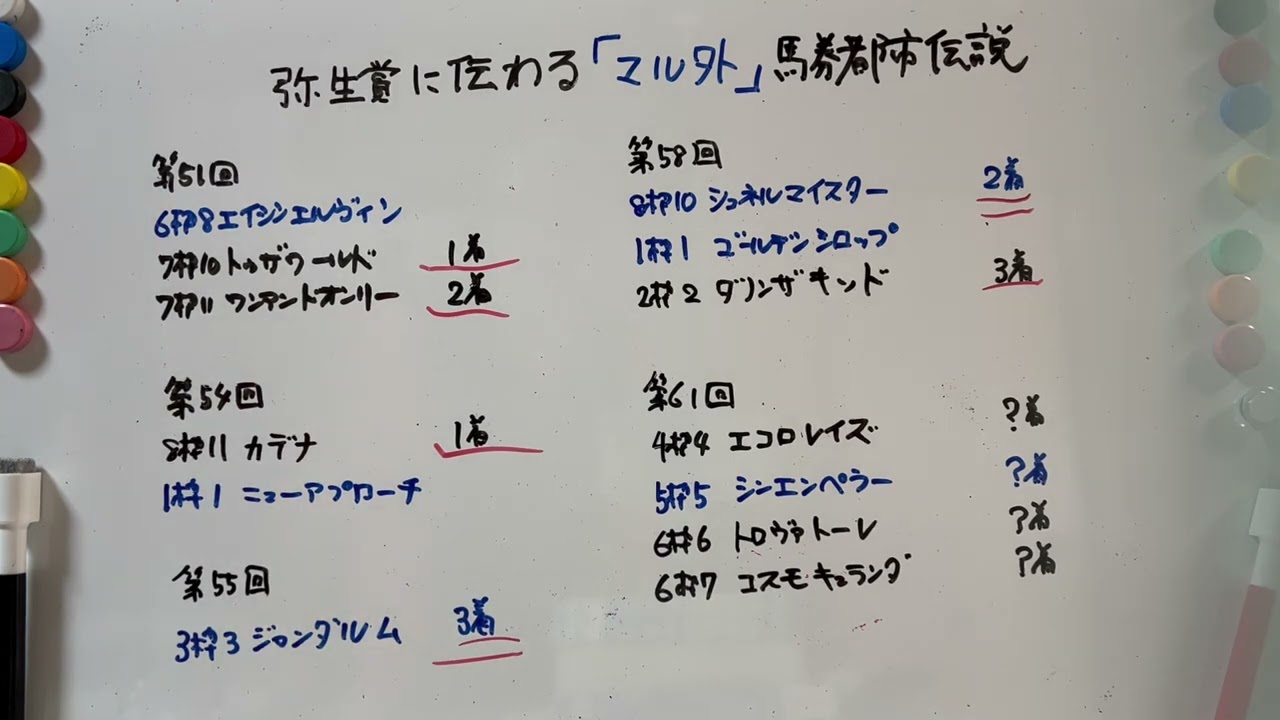 弥生賞に伝わる「マル外」馬券都市伝説
第51回
6枠8エイシンエルヴィン
7枠10トゥザワールド 1着
7枠11 ワンアンドオンリー 2着
第54回
8枠11 カデナ 1着
1枠1 ニューアプローチ
第55回
3枠3 ジャンダルム 3着
第58回
8枠10 シュネルマイスター 2着
1枠1 ゴールデンシロップ
2枠2 ダノンザキッド 3着
第61回
4枠4 エコロレイズ ?着
5枠5 シンエンペラー ?着
6枠6 トロヴァトーレ ?着
6枠7 コスモキュランダ ?着